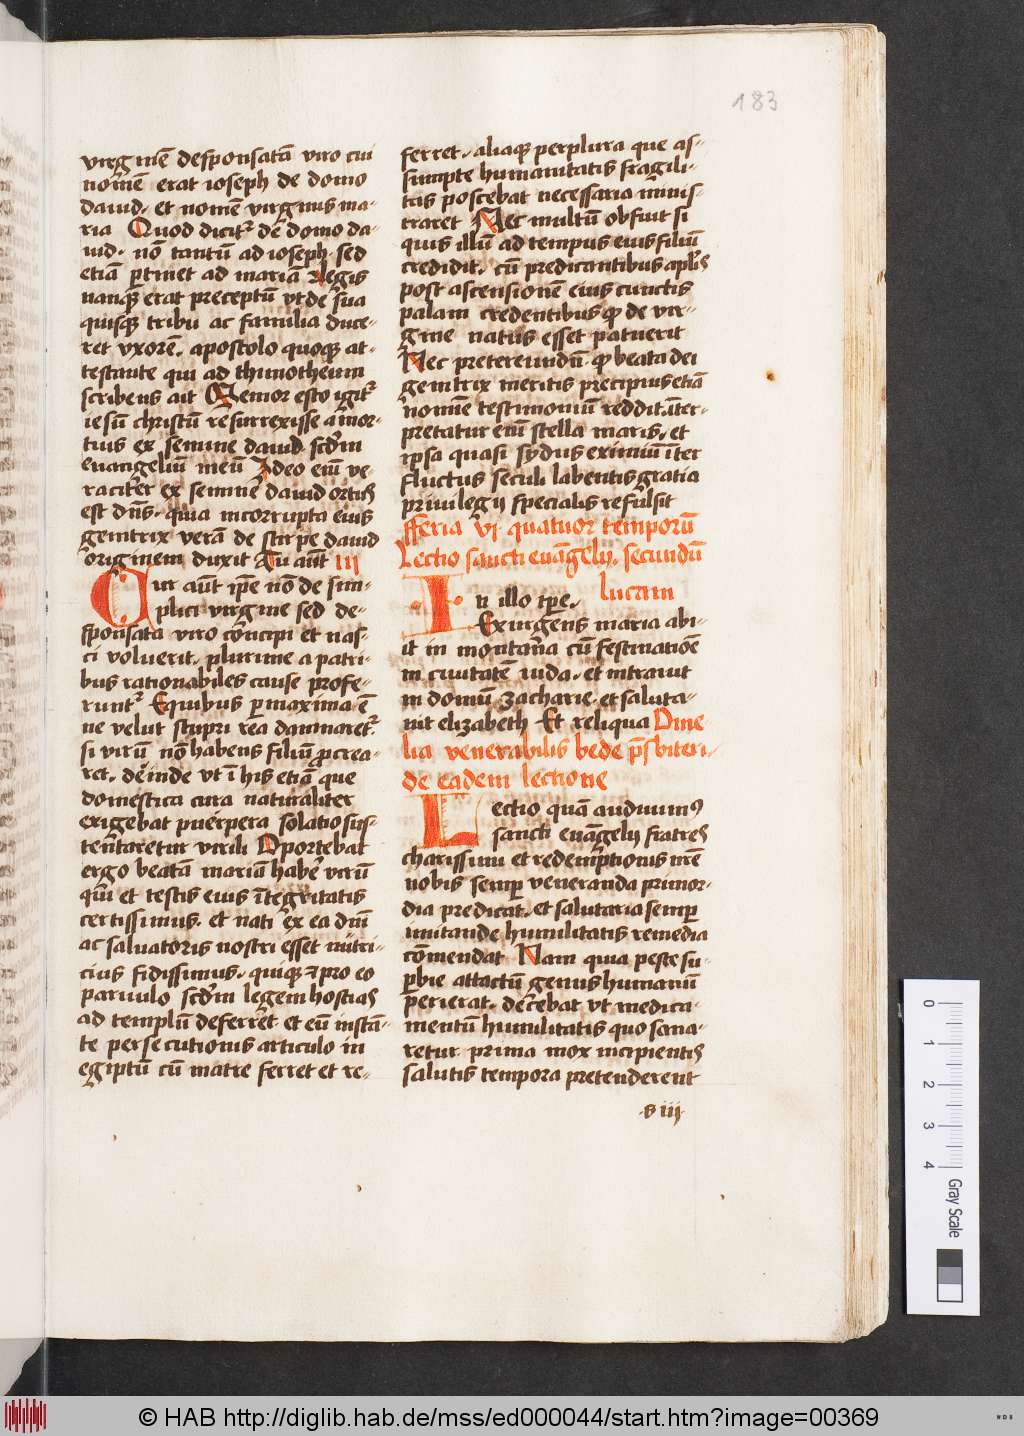 183
virginē desponsatā viro cui
nomē erat ioseph de domo
dauid. et nomē virginis ma-
ria Quod dicit᷑ dē domo da-
uid. nō tantū ad ioseph. sed
etiā ꝑtinet ad mariā Legis
nanqꝫ erat preceptū vt de sua
quisqꝫ tribu ac familia duce-
ret vxorē. apostolo quoqꝫ at-
testante qui ad thimotheum
scribens ait Memor esto igit᷑
iesū christū resurrexisse a mor-
tuis ex semine dauid scdm̄
euangeliū meū Ideo em̄ ve-
raciter ex seminē dauid ortus
est dn̄s. quia incorrupta eius
genitrix verā de stirpe dauid
originem duxit Tu aūt III
Cur aūt ip̄e nō de sim-
plici virgine sed de-
sponsata viro cōncipi et nas-
ci voluerit. plurime a patri-
bus rationabiles cause profe-
runt᷑ Equibus ꝑ maxima ē
ne velut stupri rea damnaret᷑
si virū nō habens filiū ꝓcrea-
ret. deinde vt ī his etiā que
domestica cura naturaliter
exigebat puerpera solatio sus-
tentaretur virili Oportebat
ergo beatā mariā habē virū
qui et testis eius ītegritatis
certissimus. et nati ex ea dn̄i
ac saluatoris nostri esset nutri-
cius fidissimus. quiqꝫ ꝓ eo
paruulo scdm̄ legem hostias
ad templū deferret et eū instā-
te persecutionis articulo in
egiptū cū matre ferret et re-
ferret. aliaqꝫ perplura que as-
sumpte humanitatis fragili-
tas poscebat necessaria minis-
traret Nec multū obfuit si
quis illū ad tempus eius filiū
credidit. cū predicantibus apl̄is
post ascensionē eius cunctis
palam credentibus ꝙ de vir-
gine natus esset patuerit
Nec pretereundū ꝙ beata dei
genitrix meritis precipuis etiā
nomīe testimoniū reddit īter-
pretatur em̄ stella maris. et
ipsa quasi sydus eximiū īter
fluctus seculi labentis gratia
priuilegij specialis refulsit
Fferia vj quatuor temporū
Lectio sancti euāgelij. secundū
lucam
In illo tp̄e.
Exurgens maria abi-
it in montāna cū festinatiōe
in ciuitatē iuda. et intrauit
in domū zacharie. et saluta-
uit elizabeth Et reliqua Ome
lia venerabilis bede p̄sbiteri.
de eadem lectione
Lectio quā audiuimꝰ
sancti euāgelij fratres
charissimi et redemptionis nr̄e
nobis semꝑ veneranda primor-
dia predicat. et salutaria semꝑ
imitande humilitatis remedia
cōmendat Nam quia peste su-
ꝑbie attactū genus humanū
perierat. decebat vt medica-
mentū humilitatis quo sana-
retur prima mox incipientis
salutis tempora pretenderent
·s iij·
0 1 2 3 4
Gray Scale
© HAB http://diglib.hab.de/mss/ed000044/start.htm?image=00369